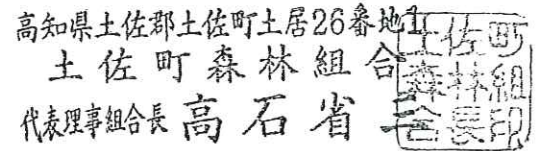 高知県土佐郡土佐町土居26番地1
土佐町森林組合
代表理事組合長 高石省三
土佐町
森林組
合長印